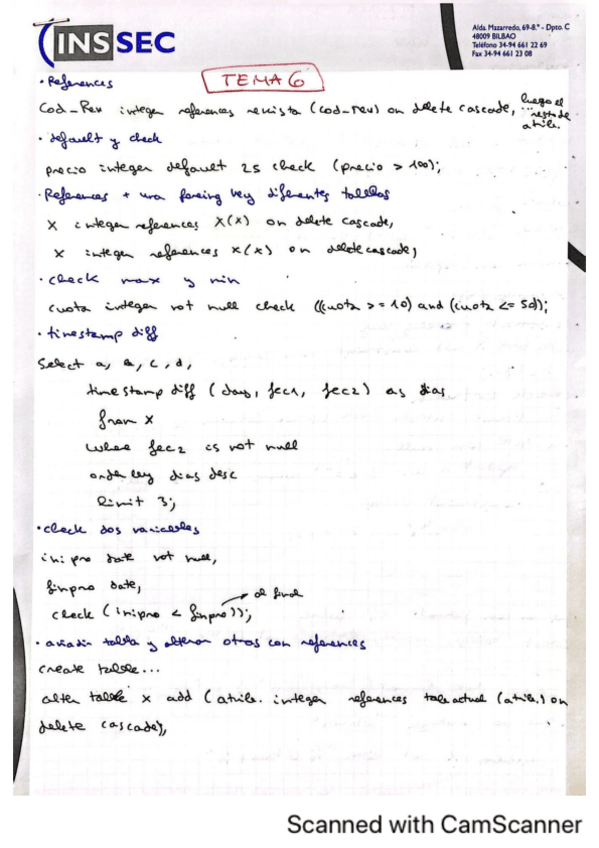 INSSEC
Alda. Mazarredo, 69-8.º - Dpto. C
48009 BILBAO
Teléfono 34-94 661 22 69
Fax 34-94 661 23 08
TEMA 6
• References
Cod_Rev integer references revista (cod_rev) on delete cascade, luego el resto de atrib.
• default y check
precio integer default 25 check (precio > 100);
• References + una foreing key diferentes tablas
X integer references X(x) on delete cascade,
X integer references x(x) on delete cascade;
• check max y min
cuota integer not null check ((cuota >= 10) and (cuota <= 50);
• timestamp diff
Select a, b, c, d,
timestamp diff (day, fec1, fec2) as dias
from X
where fec2 is not null
order by dias desc
limit 3;
• check dos variables
inipro date not null,
finpro date,
check (inipro < finpro)); al final
• añadir tabla y alterar otras con references
create table...
alter table x add (atrib. integer references tab actual (atrib.) on
delete cascade),
Scanned with CamScanner